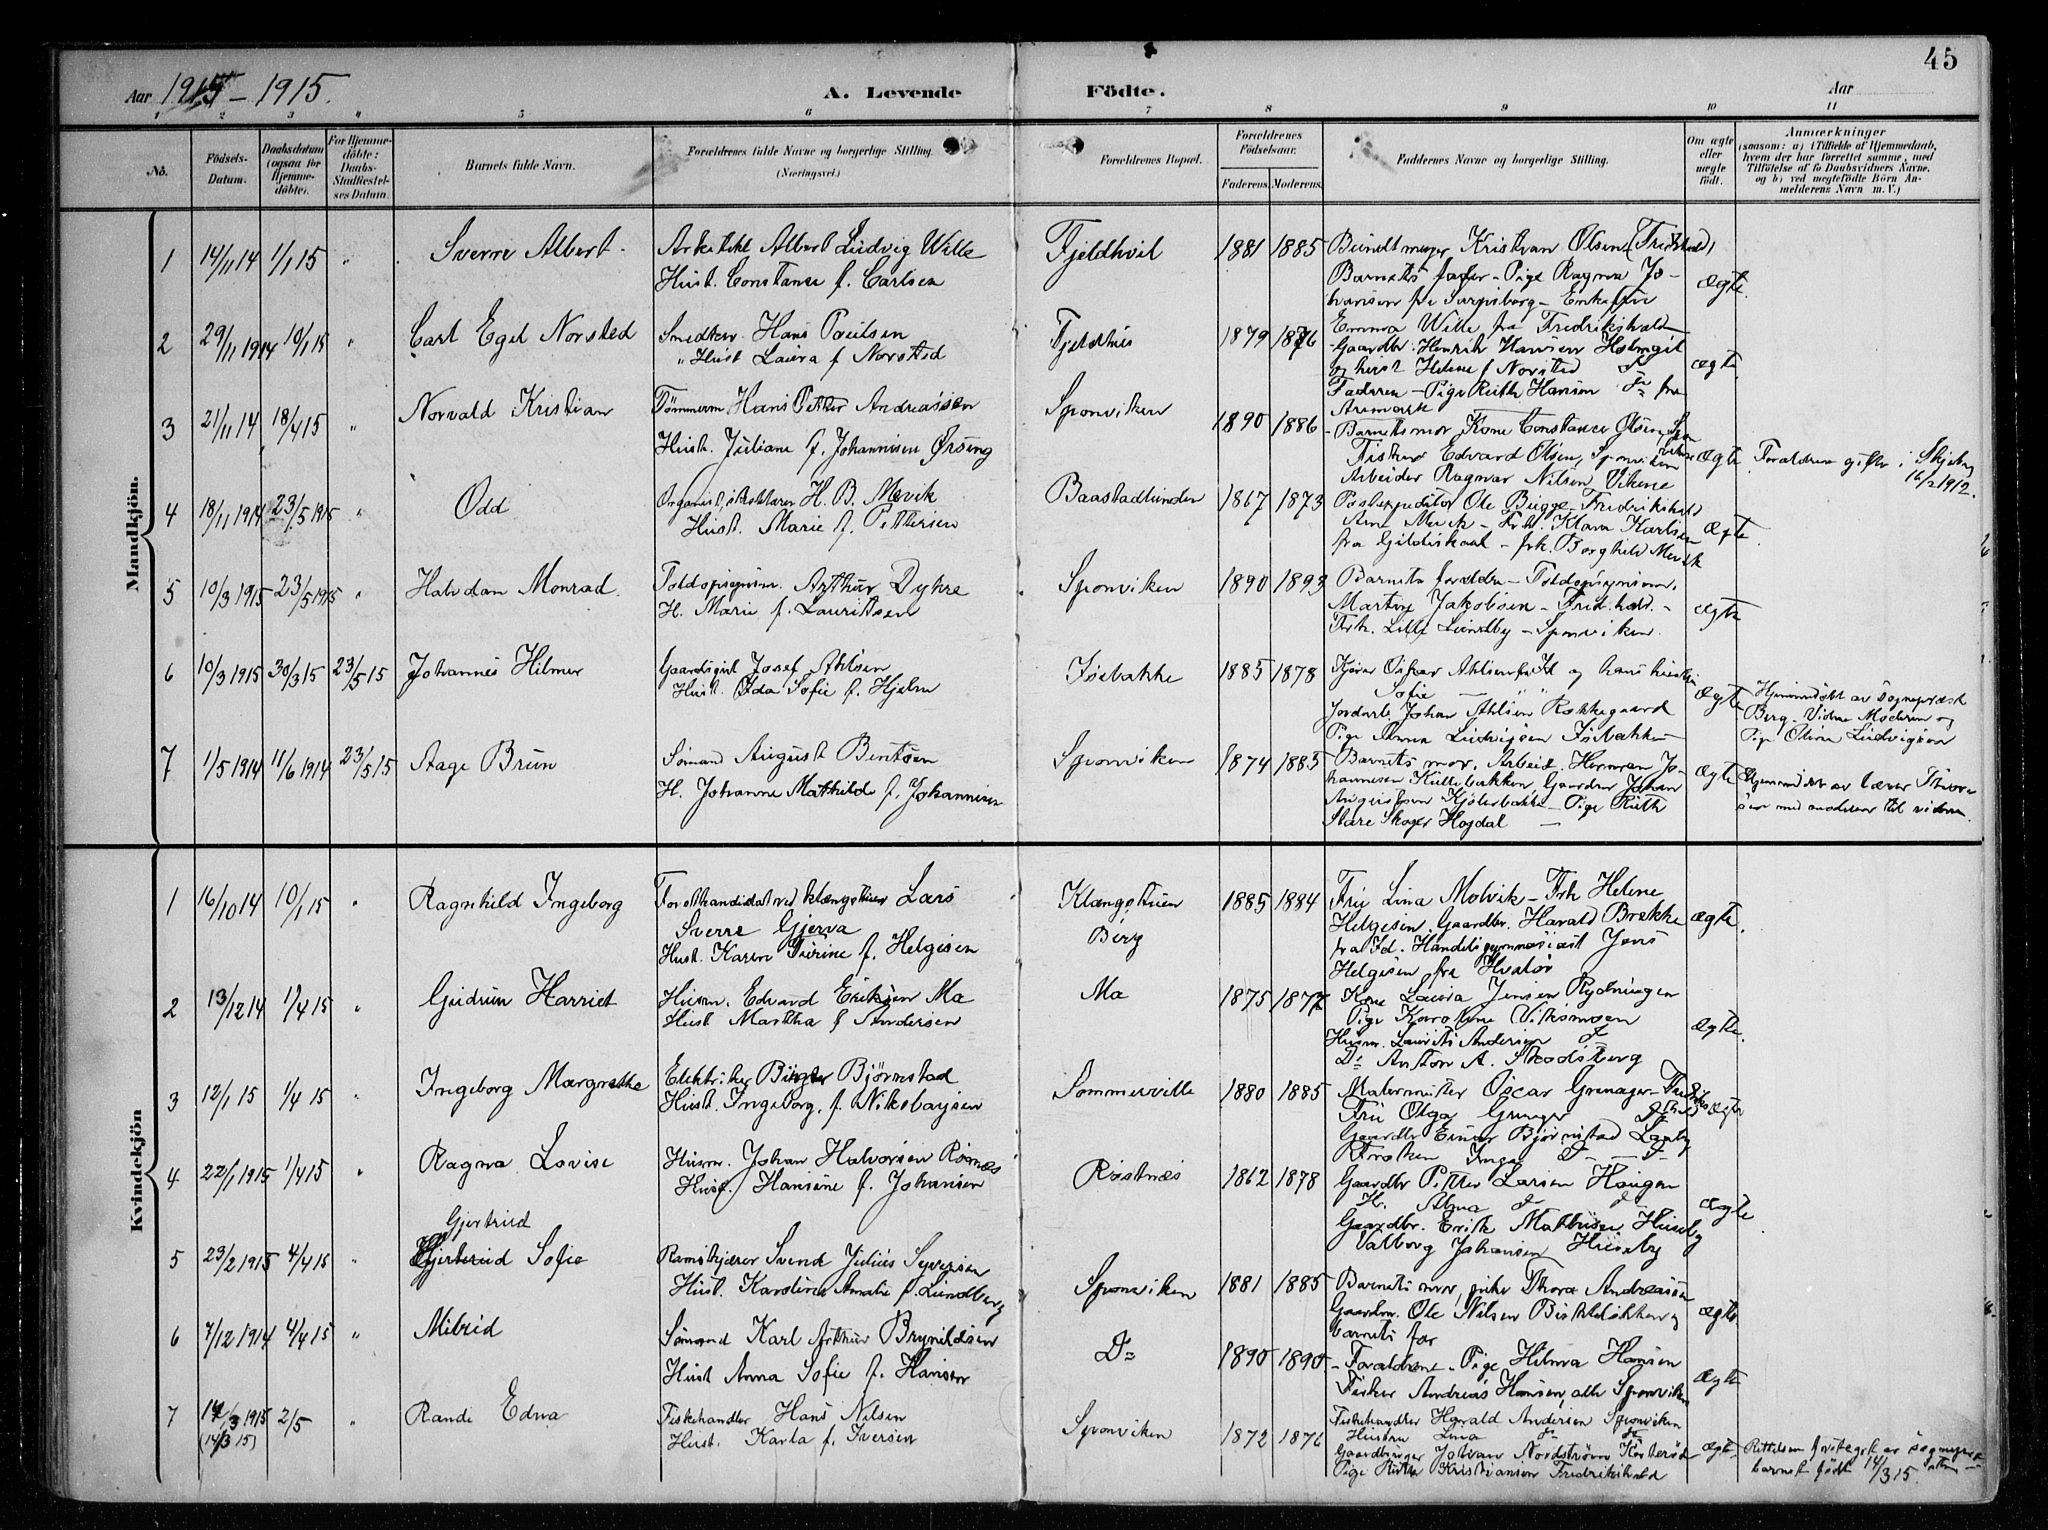 45
Aar 1915 - 1915.
A. Levende Födte.
Aar
1 2 3 " 5 6 7 8 9 10 11
No.
Födsels-Datum.
Daabsdatum (ogsaa for Hjemmedöbte).
For Hjemmedöbte: Daabs-Stadfæstelses Datum.
Barnets fulde Navn.
Forældrenes fulde Navne og borgerlige Stilling. (Næringsvei.)
Forældrenes Bopæl.
Forældrenes Födselsaar.
Faderens. Moderens.
Faddernes Navne og borgerlige Stilling.
Om ægte eller uægte født.
Anmærkninger
(saasom: a) i Tilfælde af Hjemmedaab, hvem der har forrettet samme, med Tilföielse af to Daabsvidners Navne. og b) ved uægtefödte Börn Anmelderens Navn m. V.)
Mandkjön.
1 14/11 14 1/1 15 " Sverre Albert Arkitekt Albert Ludvig Wille
Hust. Constance f. Carlsen
Fjeldhvil 1881 1885 Bundtmager Kristian Olsen (Fredrhald)
Barnets fader - Pige Ragna Johansen fra Sarpsborg - Enkefru
Emma Wille fra Fredrikshald
ægte.
2 29/11 1914 10/1 15 " Carl Egil Norsted Smedker. Hans Paulsen
" Hust Laura f. Norsted
Fjeldhus 1879 1876 Gaardbr. Henrik Hansen Holmgil
og hust Helene f Norsted
Faderen - Pige Ruth Hansen Do fra
Aremark
ægte
3 21/11 14 18/4 15 " Norvald Kristian Tömmerm Hans Petter Andreassen
Hust. Juliane f. Johannisen Ørseng
Sponviken 1890 1886 - Barnets mor, Kone Constance Olsen,
Fisker Edvard Olsen, Sponviken
Arbeider Ragnar Nilsen Vikene
ægte Forældrene gifte i Skjeberg
16/2 1912.
4 18/11 1914 23/5 1915 " Odd Organist, H. B. Mevik
Hust. Marie f. Pettersen
Baastadlunden 1867 1873 Postexpeditör Ole Bugge Fredrikshald
Arne Mevik - Frk. Klara Karlsen
fra Gildeskaal - frk. Borghild Mevik
ægte.
5 10/3 1915 23/5 1915 " Halvdan Monrad. Toldopsynsm. Arthur Dyhre
H. Marie f. Lauritsen
Sponviken 1890 1893 Barnets forældre - Toldopsynsm.
Martin Jakobsen - Fred.hald. -
Frk. Lilli Lundby - Sponviken.
ægte
6 10/3 1915 30/3 15 23/5 15 Johannes Hilmer Gaardsgut Josef Ahlsen
Hust. Ida Sofie f. Hjelm
Isebakke 1885 1878 Kjörer Oskar Ahlsen fra Id og hans hustru
Sofie
Johan Ahlsen Rokkegaard
Pige Anna Ludvigsen Isebakke
ægte Hjemmedöbt av Sogneprest
Berg. Vidne Moderen og
Pige Olivia Ludvigsen
7 1/5 1914 11/6 1914 23/5 15 Aage Brun Sömand August Berntsen
H. Johanne Mathilde f. Johannisen
Sponviken 1874 1883 Barnets mor, Arbeid. Herman Johannesen Kullebakken, Gaardbr Johan
Augustsen Kjölerbakke - Pige Ruth
Skager Hogdal
ægte Hjemmedöbt av lærer
med moderen til vidne.
Kvindekjön
1 16/10 14 10/1 15 " Ragnhild Ingeborg Forstkandidat ved Klængstuen Lars
Sverre Gjerva
Hust. Karen Turine f. Helgesen
Klængstuen
Berg
1885 1884 Fru Lina Molvik - Frk Helene
Helgesen. Gaardbr. Harald Brekke
fra Id. Handelsgymnasiast Jens
Helgesen fra Hvaler
ægte.
2 13/12 14 1/4 15 " Gudrun Harriet Husm. Edvard Eriksen Ma
Hust Martha f Andersen
Ma 1875 1877 Kone Laura Jensen Rydningen
Pige Karoline Viksmoen
Husm. Laurits Andersen
Do Anton A. Skodsberg
ægte.
3 12/1 15 1/4 15 " Ingeborg Margrethe Elektriker Birger Björnstad
Hust. Ingeborg f. Nikolaysen
Sommerville 1880 1885 Malermester Oscar Grenager Fredrikshald
Fru Olga Grenager
Gaardbr Einar Björnstad
Fröken Inga
ægte
4 22/1 1915 1/4 15 " Ragna Lovise Husm. Johan Halvorsen Rösnæs
Hust. Hansine f. Johansen
Röstnæs 1862 1878 Gaardbr Petter Larsen Haugen
H. Alma
Gaardbr. Erik Mathisen Huseby
Valborg Johansen Huseby
ægte
5 23/2 1915 4/4 15 " Gjertrud
Sofie Svend Julius Syversen
Hust. Karoline Amalie f. Lundberg
Sponviken 1881 1885 Barnets mor, pike Thora Andreassen
Gaardm. Ole Nilsen og
barnets far
ægte
6 7/12 1914 4/4 15 " Milrid Sömand Karl Arthur Brynildsen
Hust Anna Sofie f. Hansen
Do 1890 1890 - Forældrene - Pige Hilma Hansen
Fisker Andreas Hansen, alle Sponviken
ægte
7 14/3 1915 (14/3 15) 2/5 " Randi Edna Fiskehandler Hans Nilsen
Hust. Karla f. Iversen
Sponviken 1872 1876 Fiskehandler Harald Andersen Sponviken
Hustru Lina
Gaardbruger Johan Nordström
Pige Ruth Kristiansen Fredrikshald
ægte Rettelsen foretaget av sogneprest
barnet född 14/3 15